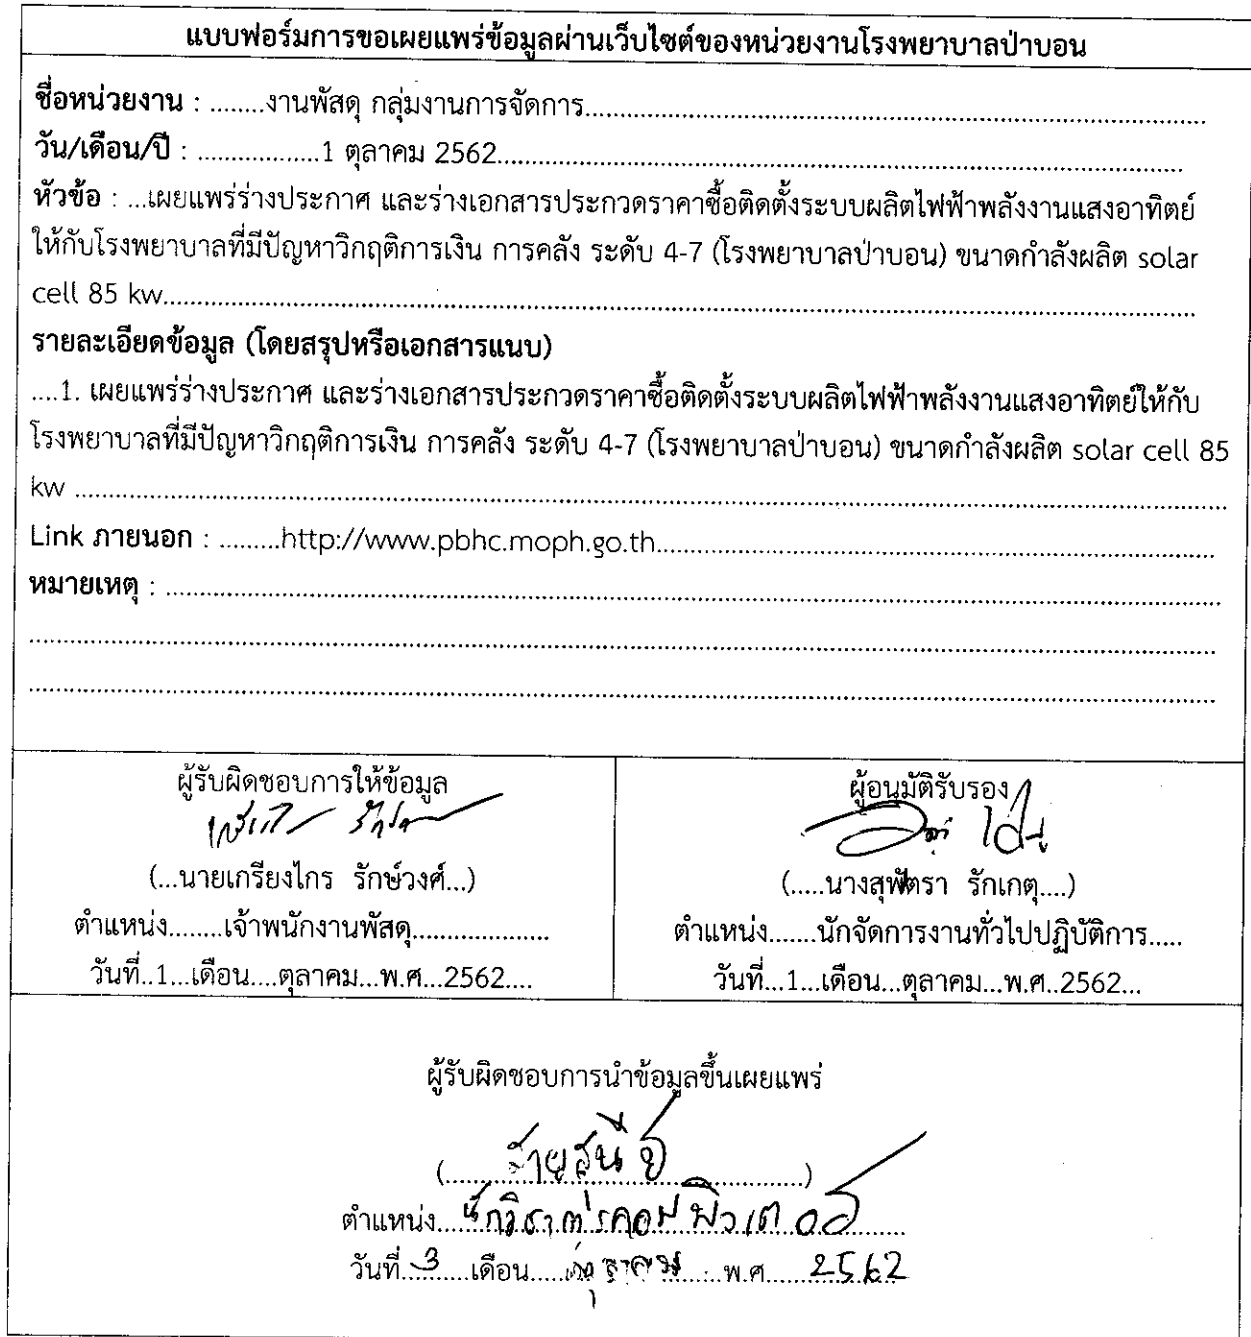 แบบฟอร์มการขอเผยแพร่ข้อมูลผ่านเว็บไซต์ของหน่วยงานโรงพยาบาลป่าบอน
ชื่อหน่วยงาน : ........งานพัสดุ กลุ่มงานการจัดการ........
วัน/เดือน/ปี : ..................1 ตุลาคม 2562........
หัวข้อ : ...เผยแพร่ร่างประกาศ และร่างเอกสารประกวดราคาซื้อติดตั้งระบบผลิตไฟฟ้าพลังงานแสงอาทิตย์
ให้กับโรงพยาบาลที่มีปัญหาวิกฤติการเงิน การคลัง ระดับ 4-7 (โรงพยาบาลป่าบอน) ขนาดกำลังผลิต solar
cell 85 kw........
รายละเอียดข้อมูล (โดยสรุปหรือเอกสารแนบ)
....1. เผยแพร่ร่างประกาศ และร่างเอกสารประกวดราคาซื้อติดตั้งระบบผลิตไฟฟ้าพลังงานแสงอาทิตย์ให้กับ
โรงพยาบาลที่มีปัญหาวิกฤติการเงิน การคลัง ระดับ 4-7 (โรงพยาบาลป่าบอน) ขนาดกำลังผลิต solar cell 85
kw ........
Link ภายนอก : .........http://www.pbhc.moph.go.th........
หมายเหตุ : ........
ผู้รับผิดชอบการให้ข้อมูล
(...นายเกรียงไกร รักษ์วงศ์...)
ตำแหน่ง........เจ้าพนักงานพัสดุ....................
วันที่..1...เดือน....ตุลาคม...พ.ศ...2562....
ผู้อนุมัติรับรอง
(.....นางสุพัตรา รักเกตุ....)
ตำแหน่ง.......นักจัดการงานทั่วไปปฏิบัติการ.....
วันที่...1...เดือน...ตุลาคม...พ.ศ..2562...
ผู้รับผิดชอบการนำข้อมูลขึ้นเผยแพร่
ตำแหน่ง....นักวิชาการคอมพิวเตอร์
วันที่..3....เดือน.....ตุลาคม....พ.ศ.....2562